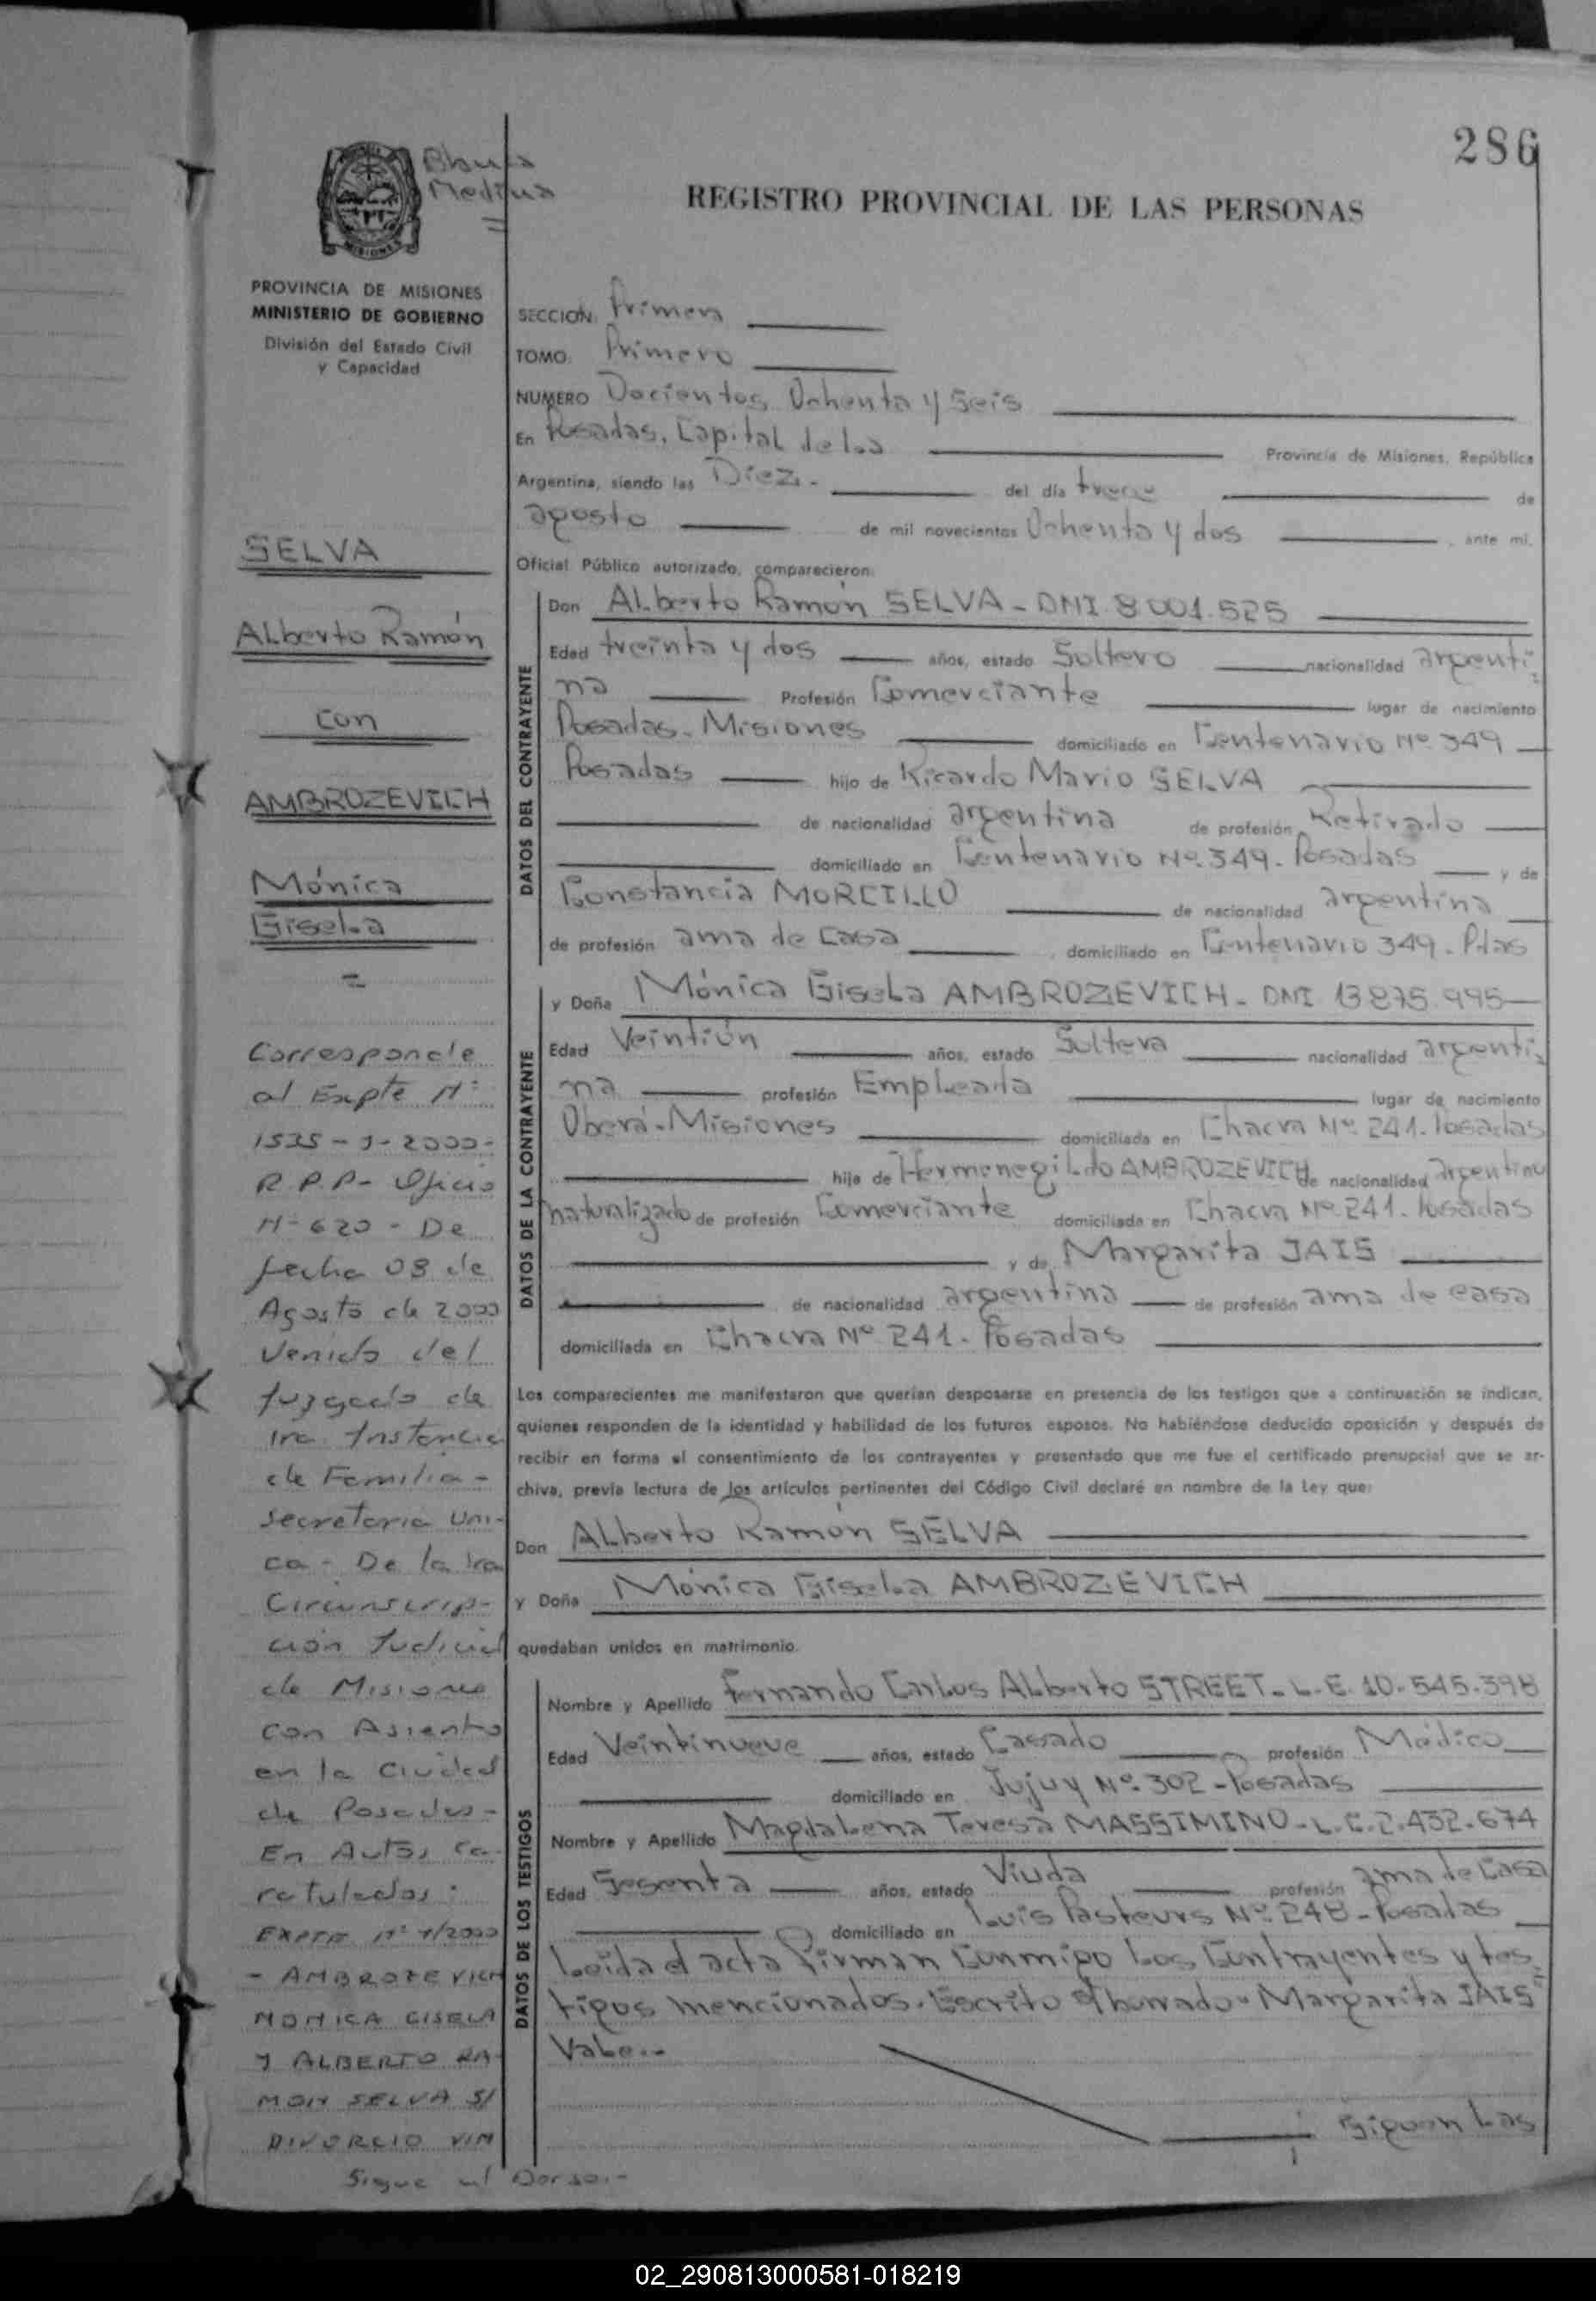 286
Blanca
Medina
MISIONES
REGISTRO PROVINCIAL DE LAS PERSONAS
PROVINCIA DE MISIONES
MINISTERIO DE GOBIERNO
División del Estado Civil
y Capacidad
SELVA
Alberto Ramón
con
AMBROZEVICH
Mónica
Gisela
Corresponde
al Expte Nº
1535-J-2000-
R.P.P- Oficio
Nº 620 - De
fecha 03 de
Agosto de 2000
Venido del
Juzgado de
1ra. Instancia
de Familia-
Secretaria Uni-
ca - De la 1ra
Circunscrip-
ción Judicial
de Misiones
con Asiento
en la Ciudad
de Posadas-
En Autos ca-
ratulados:
EXPTE Nº 1/2000
- AMBROZEVICH
MONICA GISELA
Y ALBERTO RA-
MON SELVA S/
DIVORCIO VIN
Sigue al Dorso.-
SECCION: Primera
TOMO: Primero
NUMERO Docientos Ochenta y Seis
En Posadas, Capital de la Provincia de Misiones, República
Argentina, siendo las Diez.- del día trece de
agosto de mil novecientos Ochenta y dos, ante mi,
Oficial Público autorizado, comparecieron:
DATOS DEL CONTRAYENTE
Don Alberto Ramón SELVA - DNI 8.001.525
Edad treinta y dos años, estado Soltero nacionalidad argenti-
na Profesión Comerciante lugar de nacimiento
Posadas - Misiones domiciliado en Centenario Nº 349
Posadas hijo de Ricardo Mario SELVA
de nacionalidad argentina de profesión Retirado
domiciliado en Centenario Nº. 349 - Posadas y de
Constancia MORCILLO de nacionalidad argentina
de profesión ama de Casa, domiciliado en Centenario 349 - Pdas
DATOS DE LA CONTRAYENTE
y Doña Mónica Gisela AMBROZEVICH - DNI 13.875.995
Edad Veintiún años, estado Soltera nacionalidad argenti-
na profesión Empleada lugar de nacimiento
Oberá - Misiones domiciliada en Chacra Nº 241. Posadas
hija de Hermenegildo AMBROZEVICH de nacionalidad argentino
naturalizado de profesión Comerciante domiciliado en Chacra Nº 241. Posadas
y de Margarita JAIS
de nacionalidad argentina de profesión ama de casa
domiciliada en Chacra Nº 241 - Posadas
Los comparecientes me manifestaron que querían desposarse en presencia de los testigos que a continuación se indican,
quienes responden de la identidad y habilidad de los futuros esposos. No habiéndose deducido oposición y después de
recibir en forma el consentimiento de los contrayentes y presentado que me fue el certificado prenupcial que se ar-
chiva, previa lectura de los artículos pertinentes del Código Civil declaré en nombre de la Ley que:
Don Alberto Ramón SELVA
y Doña Mónica Gisela AMBROZEVICH
quedaban unidos en matrimonio.
DATOS DE LOS TESTIGOS
Nombre y Apellido Fernando Carlos Alberto STREET - L.E. 10.545.398
Edad Veintinueve años, estado Casado profesión Médico
domiciliado en Jujuy Nº. 302 - Posadas
Nombre y Apellido Magdalena Teresa MASSIMINO - L.C. 2.432.674
Edad Sesenta años, estado Viuda profesión ama de Casa
domiciliado en Luis Pasteurs Nº 248 - Posadas
Leída el acta firman Conmigo los Contrayentes y tes-
tigos mencionados. Escrito S/borrado "Margarita JAIS"
Vale..
Siguen las
02_290813000581-018219